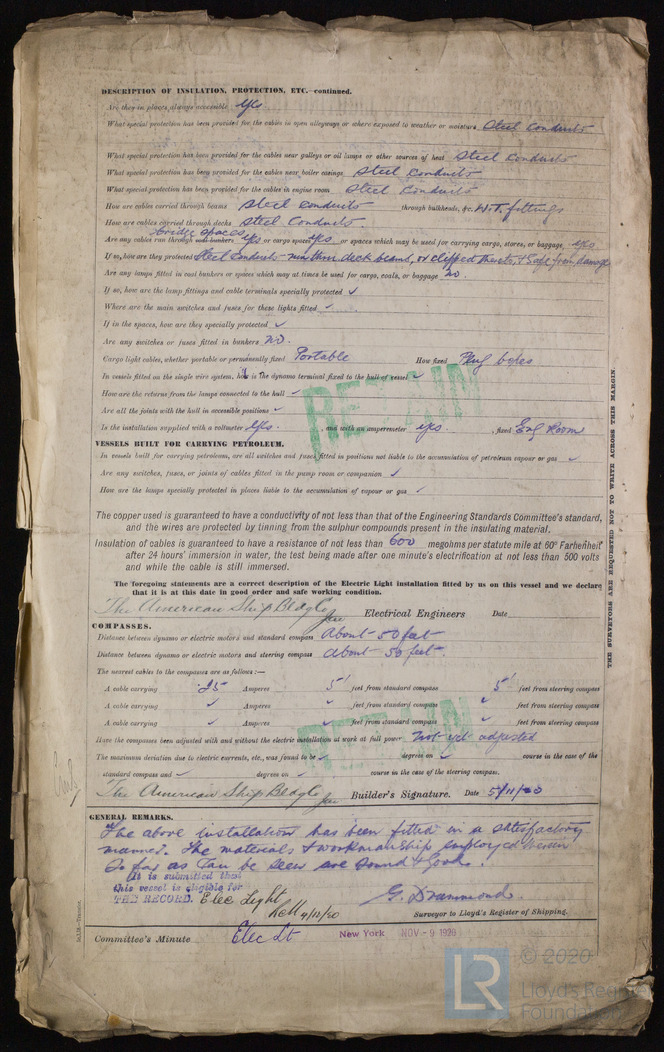 DESCRIPTION OF INSULATION, PROTECTION, ETC.—continued.
Are they in places always accessible yes
What special protection has been provided for the cables in open alleyways or where exposed to weather or moisture Steel Conduits
What special protection has been provided for the cables near galleys or oil lamps or other sources of heat Steel Conduits
What special protection has been provided for the cables near boiler casings Steel Conduits
What special protection has been provided for the cables in engine room Steel Conduits
How are cables carried through beams Steel Conduits through bulkheads, &c. W.T. fittings
How are cables carried through decks Steel Conduits.
bridge spaces
Are any cables run through coal bunkers yes or cargo spaces yes or spaces which may be used for carrying cargo, stores, or baggage yes
If so, how are they protected Steel Conduits - run thro deck beams, or clipped thereto, & Safe from damage
Are any lamps fitted in coal bunkers or spaces which may at times be used for cargo, coals, or baggage no.
If so, how are the lamp fittings and cable terminals specially protected ✓
Where are the main switches and fuses for these lights fitted ✓
If in the spaces, how are they specially protected ✓
Are any switches or fuses fitted in bunkers no.
Cargo light cables, whether portable or permanently fixed Portable How fixed Plug boxes
In vessels fitted on the single wire system, how is the dynamo terminal fixed to the hull of vessel ✓
How are the returns from the lamps connected to the hull ✓
Are all the joints with the hull in accessible positions ✓
Is the installation supplied with a voltmeter yes. , and with an amperemeter yes. , fixed Eng Room
RETAIN
VESSELS BUILT FOR CARRYING PETROLEUM.
In vessels built for carrying petroleum, are all switches and fuses fitted in positions not liable to the accumulation of petroleum vapour or gas ✓
Are any switches, fuses, or joints of cables fitted in the pump room or companion ✓
How are the lamps specially protected in places liable to the accumulation of vapour or gas ✓
The copper used is guaranteed to have a conductivity of not less than that of the Engineering Standards Committee's standard,
and the wires are protected by tinning from the sulphur compounds present in the insulating material.
Insulation of cables is guaranteed to have a resistance of not less than 600 megohms per statute mile at 60° Farhenheit
after 24 hours' immersion in water, the test being made after one minute's electrification at not less than 500 volts
and while the cable is still immersed.
The foregoing statements are a correct description of the Electric Light installation fitted by us on this vessel and we declare
that it is at this date in good order and safe working condition.
The American Ship Bldg Co Electrical Engineers Date
COMPASSES.
Distance between dynamo or electric motors and standard compass About 50 feet
Distance between dynamo or electric motors and steering compass About 50 feet.
The nearest cables to the compasses are as follows:—
A cable carrying 25 Amperes 5' feet from standard compass 5' feet from steering compass
A cable carrying ✓ Amperes ✓ feet from standard compass ✓ feet from steering compass
A cable carrying ✓ Amperes ✓ feet from standard compass ✓ feet from steering compass
RETAIN
Have the compasses been adjusted with and without the electric installation at work at full power Not yet adjusted
The maximum deviation due to electric currents, etc., was found to be ✓ degrees on ✓ course in the case of the
standard compass and ✓ degrees on ✓ course in the case of the steering compass.
The American Ship Bldg Co Builder's Signature. Date 5/11/20
GENERAL REMARKS.
The above installation has been fitted in a satisfactory
manner. The materials & workmanship employed therein
so far as can be seen are sound & good.
It is submitted that
this vessel is eligible for
THE RECORD. Elec Light
4/12/20
G. Drummond.
Surveyor to Lloyd's Register of Shipping.
Committee's Minute Elec Lt New York NOV - 9 1920
THE SURVEYORS ARE REQUESTED NOT TO WRITE ACROSS THIS MARGIN.
LR
© 2020
Lloyd's Register
Foundation